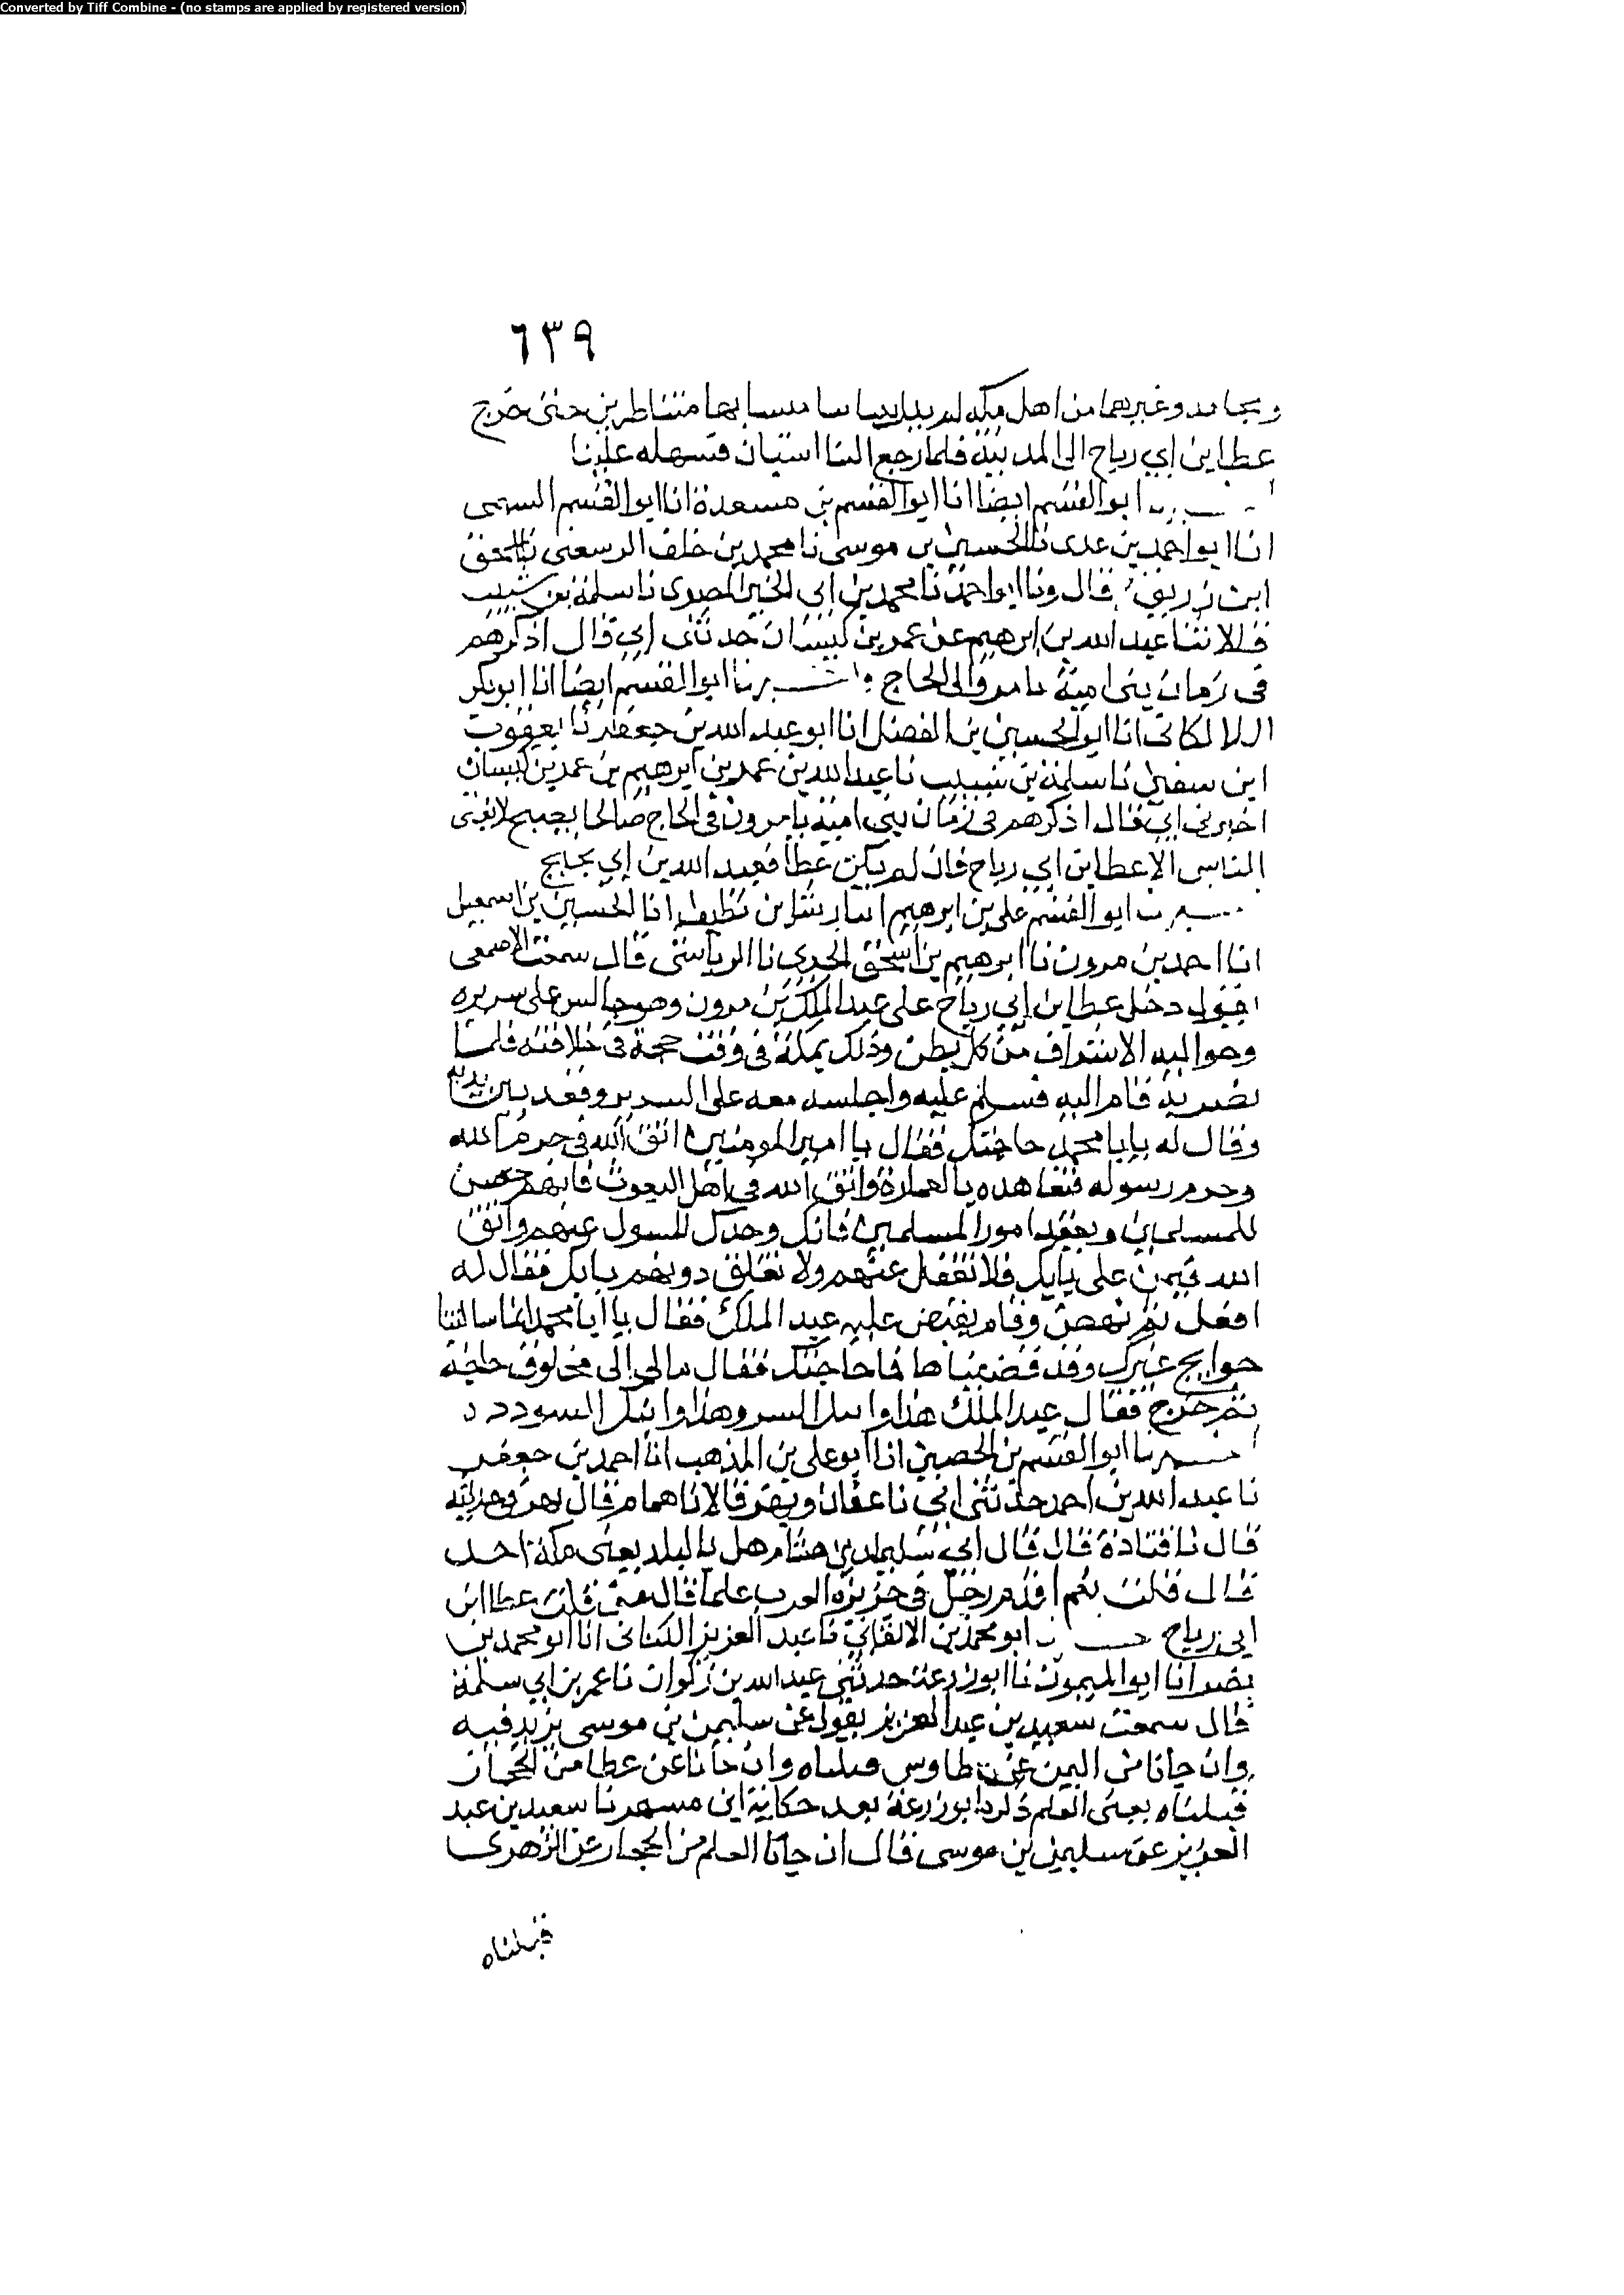 Converted by Tiff Combine - (no stamps are applied by registered version)
٦٣٩
ومجاهد وغيرهما من اهل مكه لم متناظرين حتى خرج
عطا بن ابي رباح الى المدينة فلما رجع الينا استبان فضله علينا
ابو القسم ايضا انا ابو القسم بن مسعدة انا ابو القسم السهمى
انا ابو احمد بن عدى نا الحسين بن موسى نا محمد بن خلف الرسعنى
ابن زريق قال ونا ابو احمد نا محمد بن ابى المصرى نا سلمة بن شبيب
قالا نا عبد الله بن ابرهيم عن عمر بن كيسان حدثنى ابي قال اذكرهم
فى زمان بنى امية الحاج برنا ابو القسم ايضا انا ابو بكر
اللالكائى انا ابو الحسين بن الفضل انا ابو عبد الله بن جعفر نا يعقوب
ابن سفين نا سلمة بن شبيب نا عبد الله بن عمر بن ابرهيم بن عمر بن كيسان
اخبرنى ابي قال اذكرهم فى زمان بنى امية يامرون فى الحاج صائحا يصيح لا يفتى
الناس الا عطا بن ابي رباح فان لم يكن عطا فعبد الله بن ابي نجيح
ابو القسم على بن ابرهيم انا رشا بن نظيف انا الحسين بن اسمعيل
انا احمد بن مرون نا ابرهيم بن اسحق الحربى نا الرياشى قال سمعت الاصمعى
يقول دخل عطا بن ابي رباح على عبد الملك بن مرون وهو جالس على سريره
وحواليه الاشراف من كل بطن وذلك بمكة فى وقت حجه فى خلافته فلما
بصر به قام اليه فسلم عليه واجلسه معه على السرير وقعد بين يديه
وقال له يابا محمد حاجتك فقال يا امير المومنين اتق الله فى حرم الله
وحرم رسوله فتعاهده بالعمارة واتق الله فى اهل الثغور فانهم حصن
للمسلمين وتفقد امور المسلمين فانك وحدك المسول عنهم واتق
الله فيمن على بابك فلا تغفل عنهم ولا تغلق دونهم بابك فقال له
افعل ثم نهض وقام فقبض عليه عبد الملك فقال يا ابا محمد انما سالتنا
حوايج غيرك وقد قضيناها فما حاجتك فقال مالى الى مخلوق حاجة
ثم خرج فقال عبد الملك هذا وابيك الشرف وهذا وابيك السودد
نا ابو القسم بن الحصين انا ابو على بن المذهب انا احمد بن جعفر
نا عبد الله بن احمد حدثنى ابى نا عفان وبهز قالا نا همام قال بهز فى حديثه
قال نا قتادة قال قال لى سليمان بن هشام هل بالبلد يعنى مكة احد
قال قلت نعم اقدم رجل فى جزيرة العرب علما قال من قلت عطا بن
ابى رباح ابو محمد بن الاكفانى نا عبد العزيز الكتانى انا ابو محمد بن
نصر انا ابو الميمون نا ابو زرعة حدثنى عبد الله بن ذكوان نا عمر بن ابي سلمة
قال سمعت سعيد بن عبد العزيز يقول عن سليمن بن موسى يزيد فيه
وان جانا من اليمن عن طاوس قبلناه وان جانا عن عطا من الحجاز
قبلناه يعنى العلم ذكره ابو زرعة بعد حكاية ابن مسهر نا سعيد بن عبد
العزيز عن سليمن بن موسى قال ان جانا العلم من الحجاز عن الزهرى
قبلناه